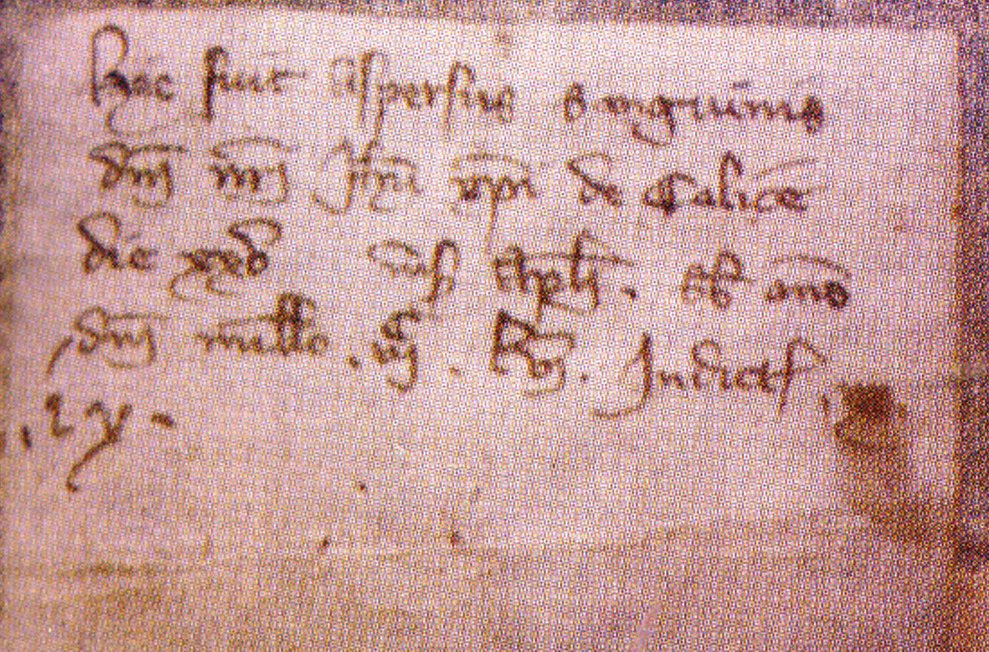 hic fuit aspersus sanguinis
dnj nrj Jhu xpi de Calice
die xxv ano
dnj millo . Indict
. ix .